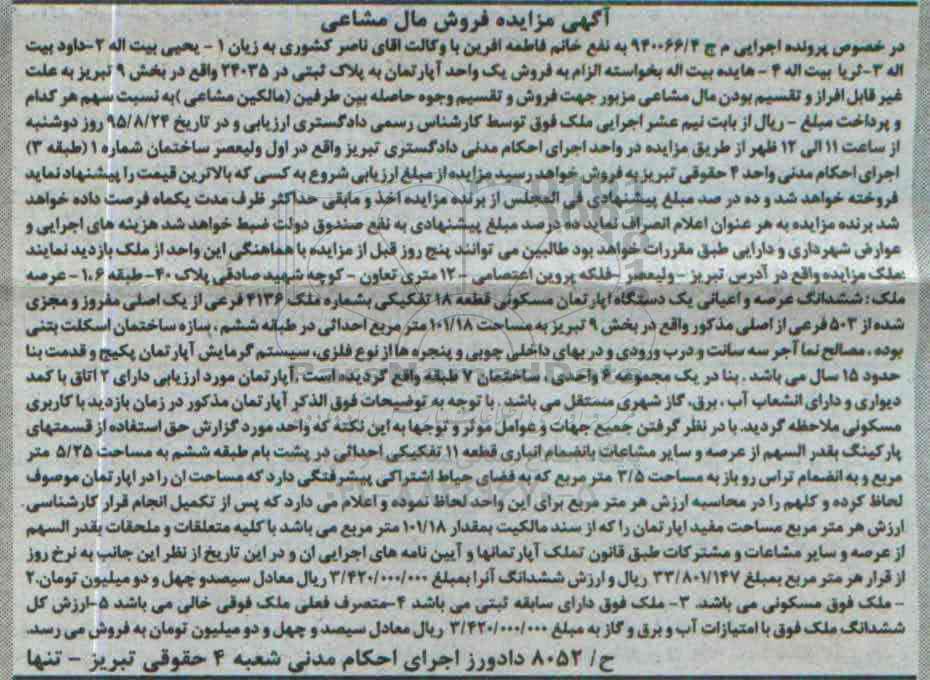 آگهی مزایده فروش مال مشاعی
در خصوص پرونده اجرایی م ج ۹۴۰۰۶۶/۴ به نفع خانم فاطمه افرین با وکالت اقای ناصر کشوری به زیان ۱ - یحیی بیت اله ۲-داود بیت
اله ۳-ثریا بیت اله ۴ - هایده بیت اله بخواسته الزام به فروش یک واحد آپارتمان به پلاک ثبتی در ۲۴۰۳۵ واقع در بخش ۹ تبریز به علت
غیر قابل افراز و تقسیم بودن مال مشاعی مزبور جهت فروش و تقسیم وجوه حاصله بین طرفین (مالکین مشاعی )به نسبت سهم هر کدام
و پرداخت مبلغ - ریال از بابت نیم عشر اجرایی ملک فوق توسط کارشناس رسمی دادگستری ارزیابی و در تاریخ ۹۵/۸/۲۴ روز دوشنبه
از ساعت ۱۱ الی ۱۲ ظهر از طریق مزایده در واحد اجرای احکام مدنی دادگستری تبریز واقع در اول ولیعصر ساختمان شماره ۱ (طبقه ۳)
اجرای احکام مدنی واحد ۴ حقوقی تبریز به فروش خواهد رسید مزایده از مبلغ ارزیابی شروع به کسی که بالاترین قیمت را پیشنهاد نماید
فروخته خواهد شد و ده در صد مبلغ پیشنهادی فی المجلس از برنده مزایده اخذ و مابقی حداکثر ظرف مدت یکماه فرصت داده خواهد
شد برنده مزایده به هر عنوان اعلام انصراف نماید ده درصد مبلغ پیشنهادی به نفع صندوق دولت ضبط خواهد شد هزینه های اجرایی و
عوارض شهرداری و دارایی طبق مقررات خواهد بود طالبین می توانند پنج روز قبل از مزایده با هماهنگی این واحد از ملک بازدید نمایند
:ملک مزایده واقع در آدرس تبریز - ولیعصر - فلکه پروین اعتصامی - ۱۲ متری تعاون - کوچه شهید صادقی پلاک ۴۰- طبقه ۱،۶- عرصه
ملک : ششدانگ عرصه و اعیانی یک دستگاه اپارتمان مسکونی قطعه ۱۸ تفکیکی بشماره ملک ۴۱۳۶ فرعی از یک اصلی مفروز و مجزی
شده از ۵۰۳ فرعی از اصلی مذکور واقع در بخش ۹ تبریز به مساحت ۱۰۱/۱۸ متر مربع احداثی در طبقه ششم ، سازه ساختمان اسکلت بتنی
بوده ، مصالح نما آجر سه سانت و درب ورودی و در بهای داخلی چوبی و پنجره ها از نوع فلزی، سیستم گرمایش آپارتمان پکیج و قدمت بنا
حدود ۱۵ سال می باشد . بنا در یک مجموعه واحدی ، ساختمان ۷ طبقه واقع گردیده است .آپارتمان مورد ارزیابی دارای ۲ اتاق با کمد
دیواری و دارای انشعاب آب ، برق، گاز شهری مستقل می باشد . با توجه به توضیحات فوق الذکر آپارتمان مذکور در زمان بازدید با کاربری
مسکونی ملاحظه گردید. با در نظر گرفتن جمیع جهات و عوامل موثر و توجها به این نکته که واحد مورد گزارش حق استفاده از قسمتهای
پارکینگ بقدر السهم از عرصه و سایر مشاعات بانضمام انباری قطعه ۱۱ تفکیکی احداثی در پشت بام طبقه ششم به مساحت ۵/۲۵ متر
مربع و به انضمام تراس رو باز به مساحت ۳/۵ متر مربع که به فضای حیاط اشتراکی پیشرفتگی دارد که مساحت ان را در اپارتمان موصوف
لحاظ کرده و کلهم را در محاسبه ارزش هر متر مربع برای این واحد لحاظ نموده و اعلام می دارد که پس از تکمیل انجام قرار کارشناسی .
ارزش هر متر مربع مساحت مفید اپارتمان را که از سند مالکیت بمقدار ۱۰۱/۱۸ متر مربع می باشد با کلیه متعلقات و ملحقات بقدر السهم
از عرصه و سایر مشاعات و مشترکات طبق قانون تملک آپارتمانها و آیین نامه های اجرایی ان و در این تاریخ از نظر این جانب به نرخ روز
از قرار هر متر مربع بمبلغ ۳۳/۸۰۱/۱۴۷ ریال و ارزش ششدانگ آنرا بمبلغ ۳/۴۲۰/۰۰۰/۰۰۰ ریال معادل سیصدو چهل و دو میلیون تومان.۲
- ملک فوق مسکونی می باشد. ۳- ملک فوق دارای سابقه ثبتی می باشد ۴-متصرف فعلی ملک فوقی خالی می باشد ۵-ارزش کل
ششدانگ ملک فوق با امتیازات آب و برق و گاز به مبلغ ۳/۴۲۰/۰۰۰/۰۰۰ ریال معادل سیصد و چهل و دو میلیون تومان به فروش می رسد.
ح/ ۸۰۵۲ دادورز اجرای احکام مدنی شعبه ۴ حقوقی تبریز - تنها
ParsNamadData